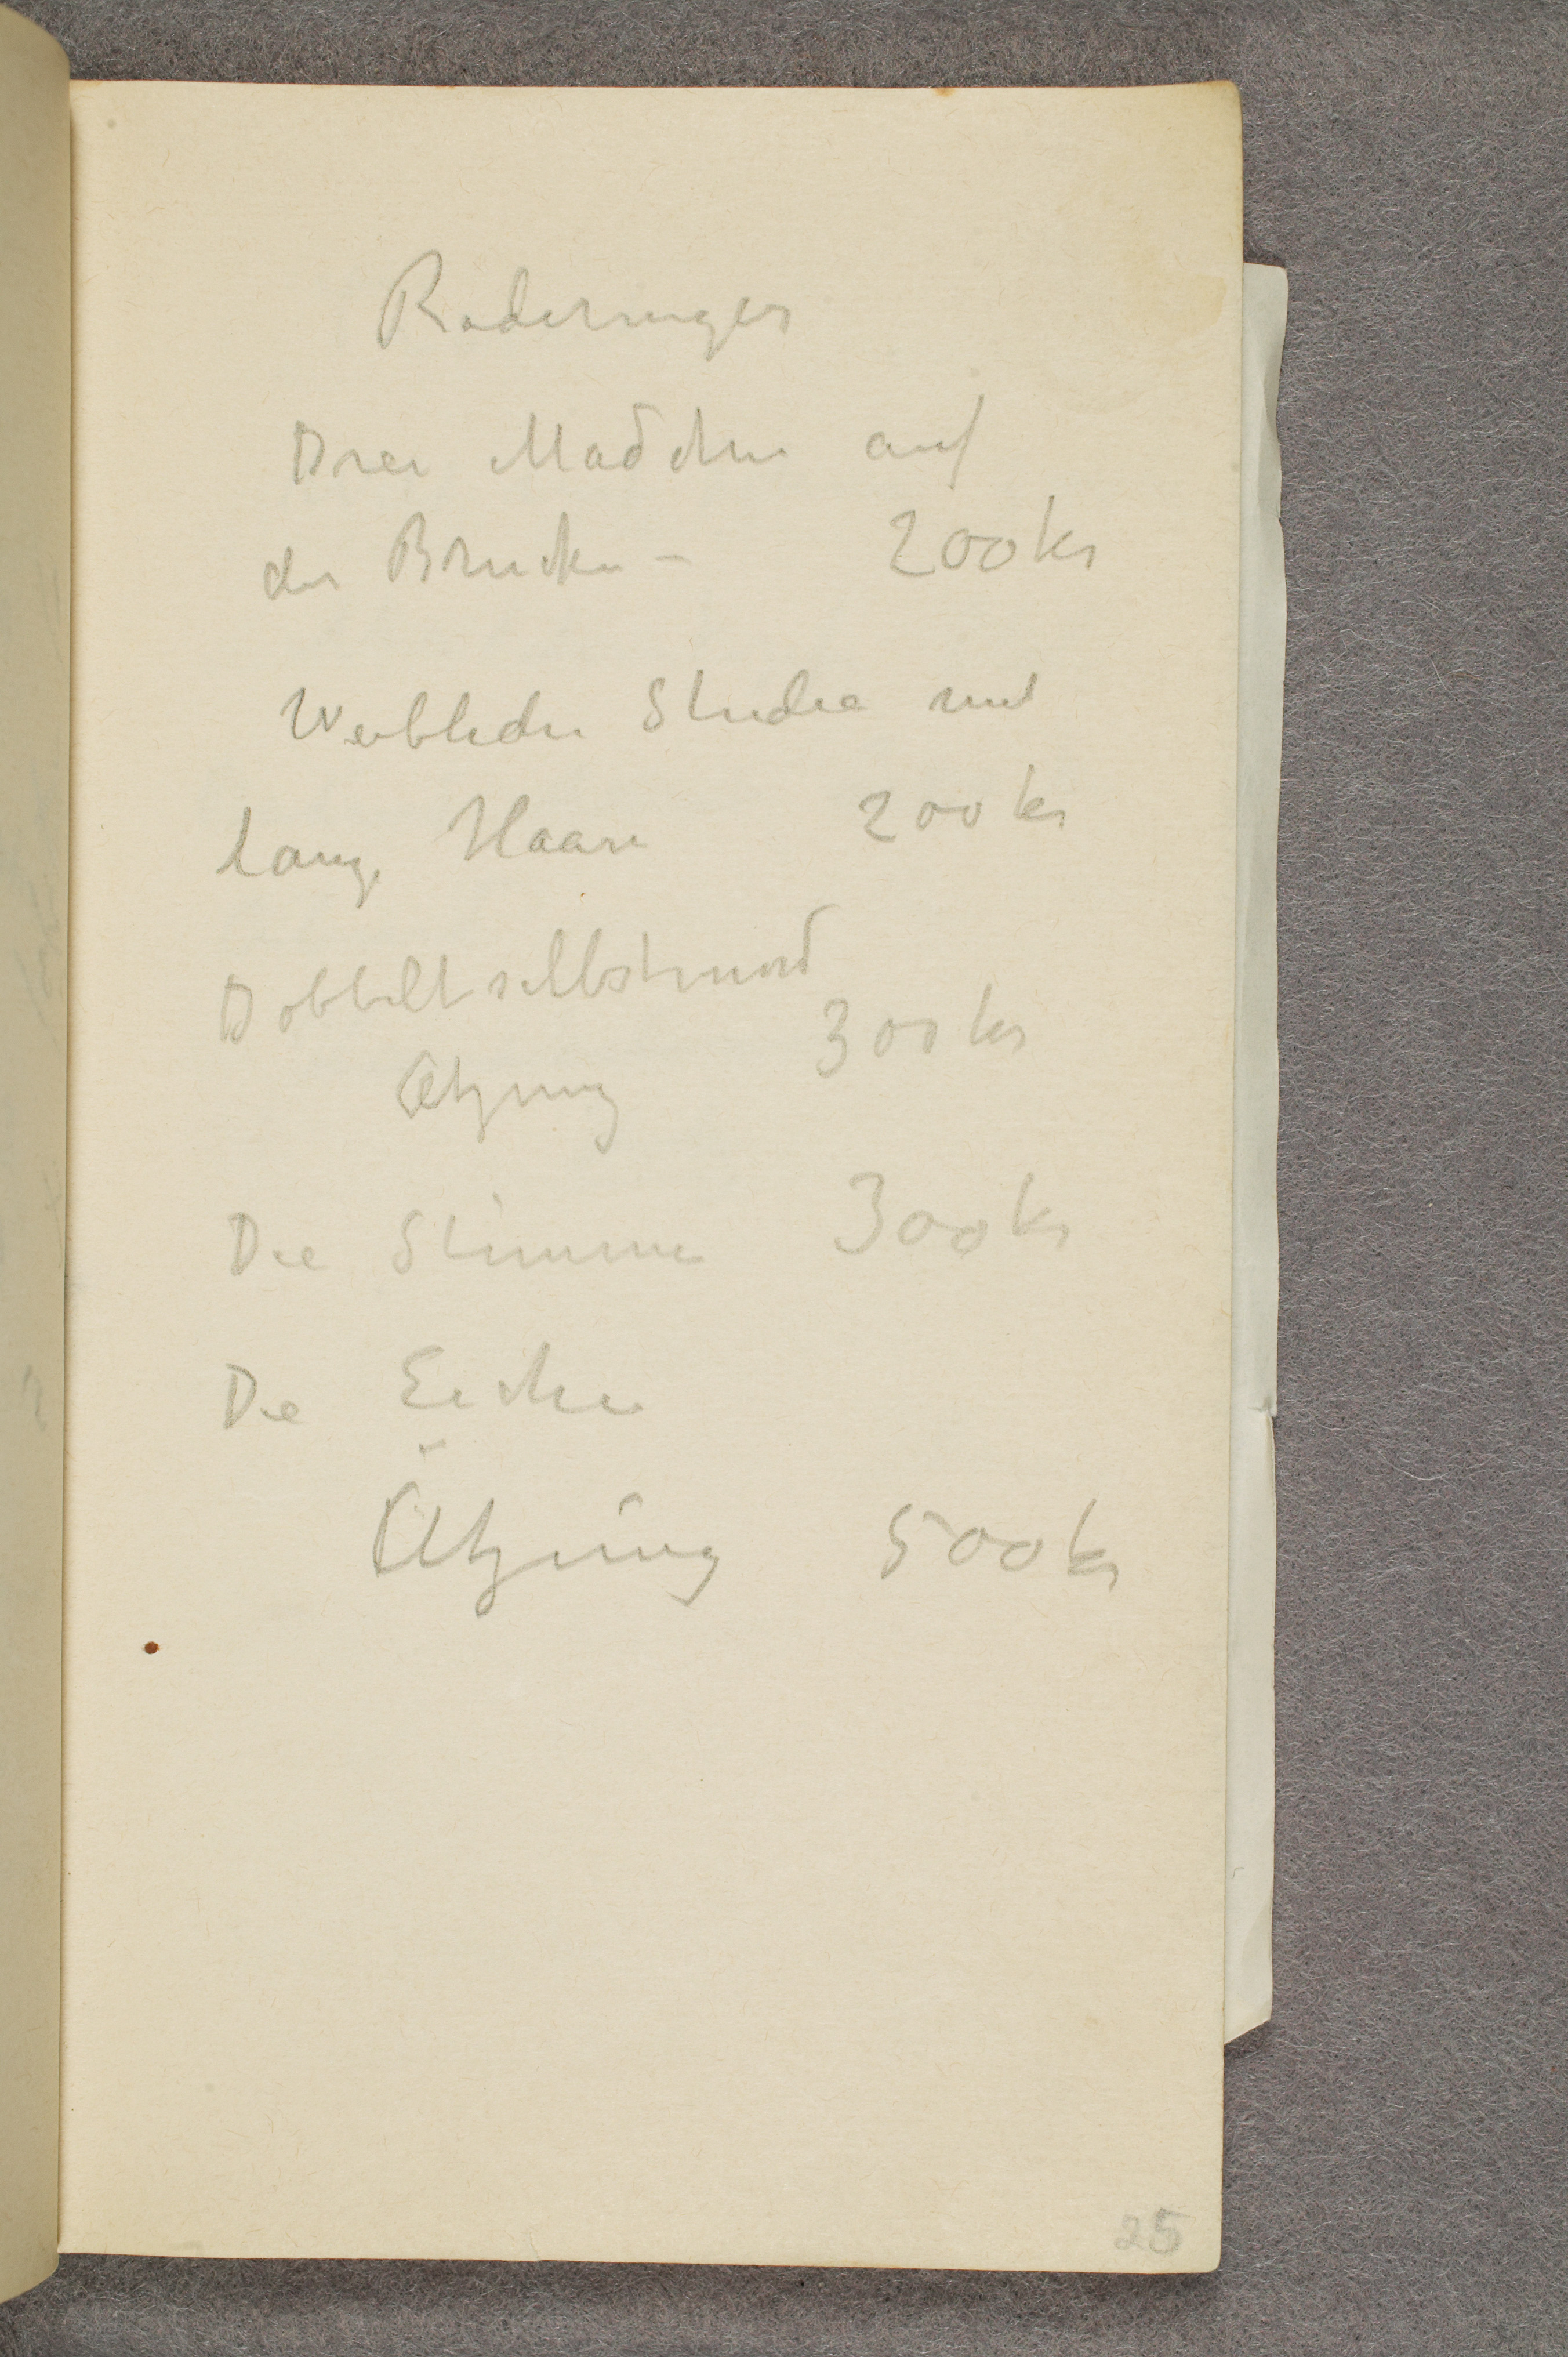 Raderinger
Drei Madchen auf
der Brucke – 200 kr
Weibliche Studie mit
lang Haare 200 kr
Dobbeltselbstmord
300 kr
Atzung
Die Stimme 300 kr
Die Eichen
Ätzung 500 kr
25